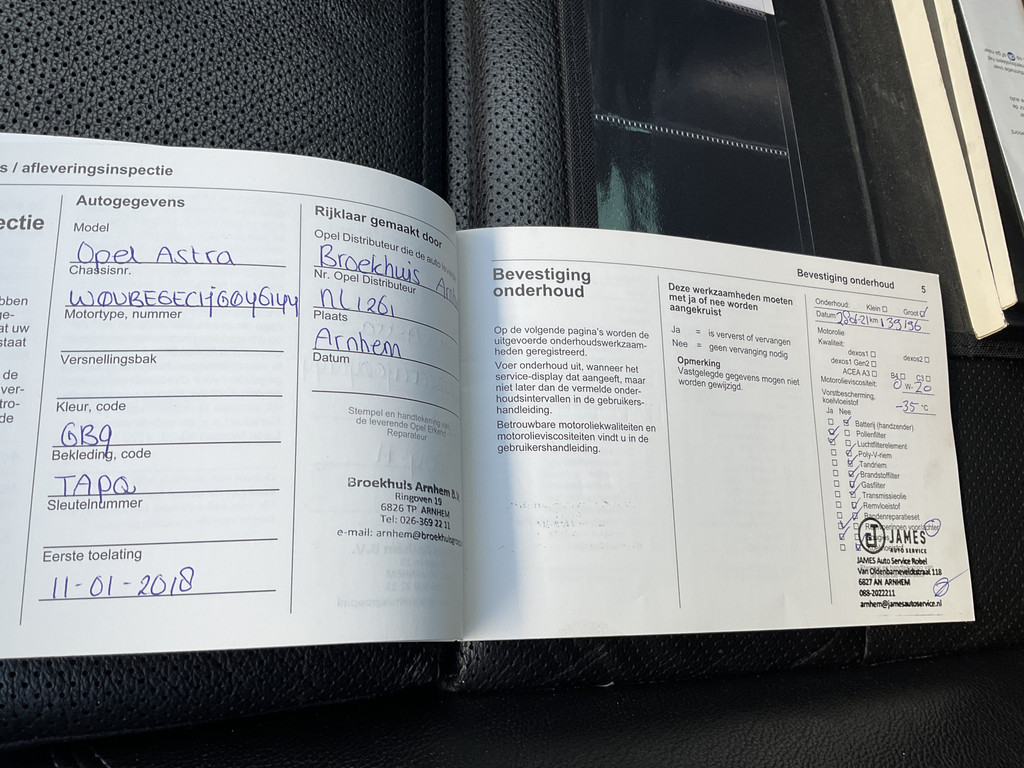 s / afleveringsinspectie
ectie
bben
ge-
at uw
staat
de
ver-
tro-
de
Autogegevens
Model
Opel Astra
Chassisnr.
Motortype, nummer
Versnellingsbak
Kleur, code
GBQ
Bekleding, code
TAPQ
Sleutelnummer
Eerste toelating
11-01-2018
Rijklaar gemaakt door
Opel Distributeur die de auto
Broekhuis
Nr. Opel Distributeur
NL1261
Plaats
Arnhem
Datum
Stempel en handtekening van
de leverende Opel Erkend
Reparateur
Broekhuis Arnhem B.V.
Ringoven 19
6826 TP ARNHEM
Tel: 026-369 22 11
e-mail: arnhem@broekhuisgroep
Bevestiging
onderhoud
Op de volgende pagina's worden de
uitgevoerde onderhoudswerkzaam-
heden geregistreerd.
Voer onderhoud uit, wanneer het
service-display dat aangeeft, maar
niet later dan de vermelde onder-
houdsintervallen in de gebruikers-
handleiding.
Betrouwbare motoroliekwaliteiten en
motorolieviscositeiten vindt u in de
gebruikershandleiding.
Deze werkzaamheden moeten
met ja of nee worden
aangekruist
Ja = is ververst of vervangen
Nee = geen vervanging nodig
Opmerking
Vastgelegde gegevens mogen niet
worden gewijzigd.
Bevestiging onderhoud 5
Onderhoud: Klein Groot
Datum 28-6-21 km 139196
Motorolie
Kwaliteit:
dexos1 dexos2
dexos1 Gen2
ACEA A3 B4 C3
Motorolieviscositeit: 0 W- 20
Vorstbescherming,
koelvloeistof -35 °C
Ja Nee
Batterij (handzender)
Pollenfilter
Luchtfilterelement
Poly-V-riem
Tandriem
Brandstoffilter
Gasfilter
Transmissieolie
Remvloeistof
Bandenreparatieset
JAMES
AUTO SERVICE
JAMES Auto Service Robel
Van Oldenbarneveldtstraat 118
6827 AN ARNHEM
088-2022211
arnhem@jamesautoservice.nl